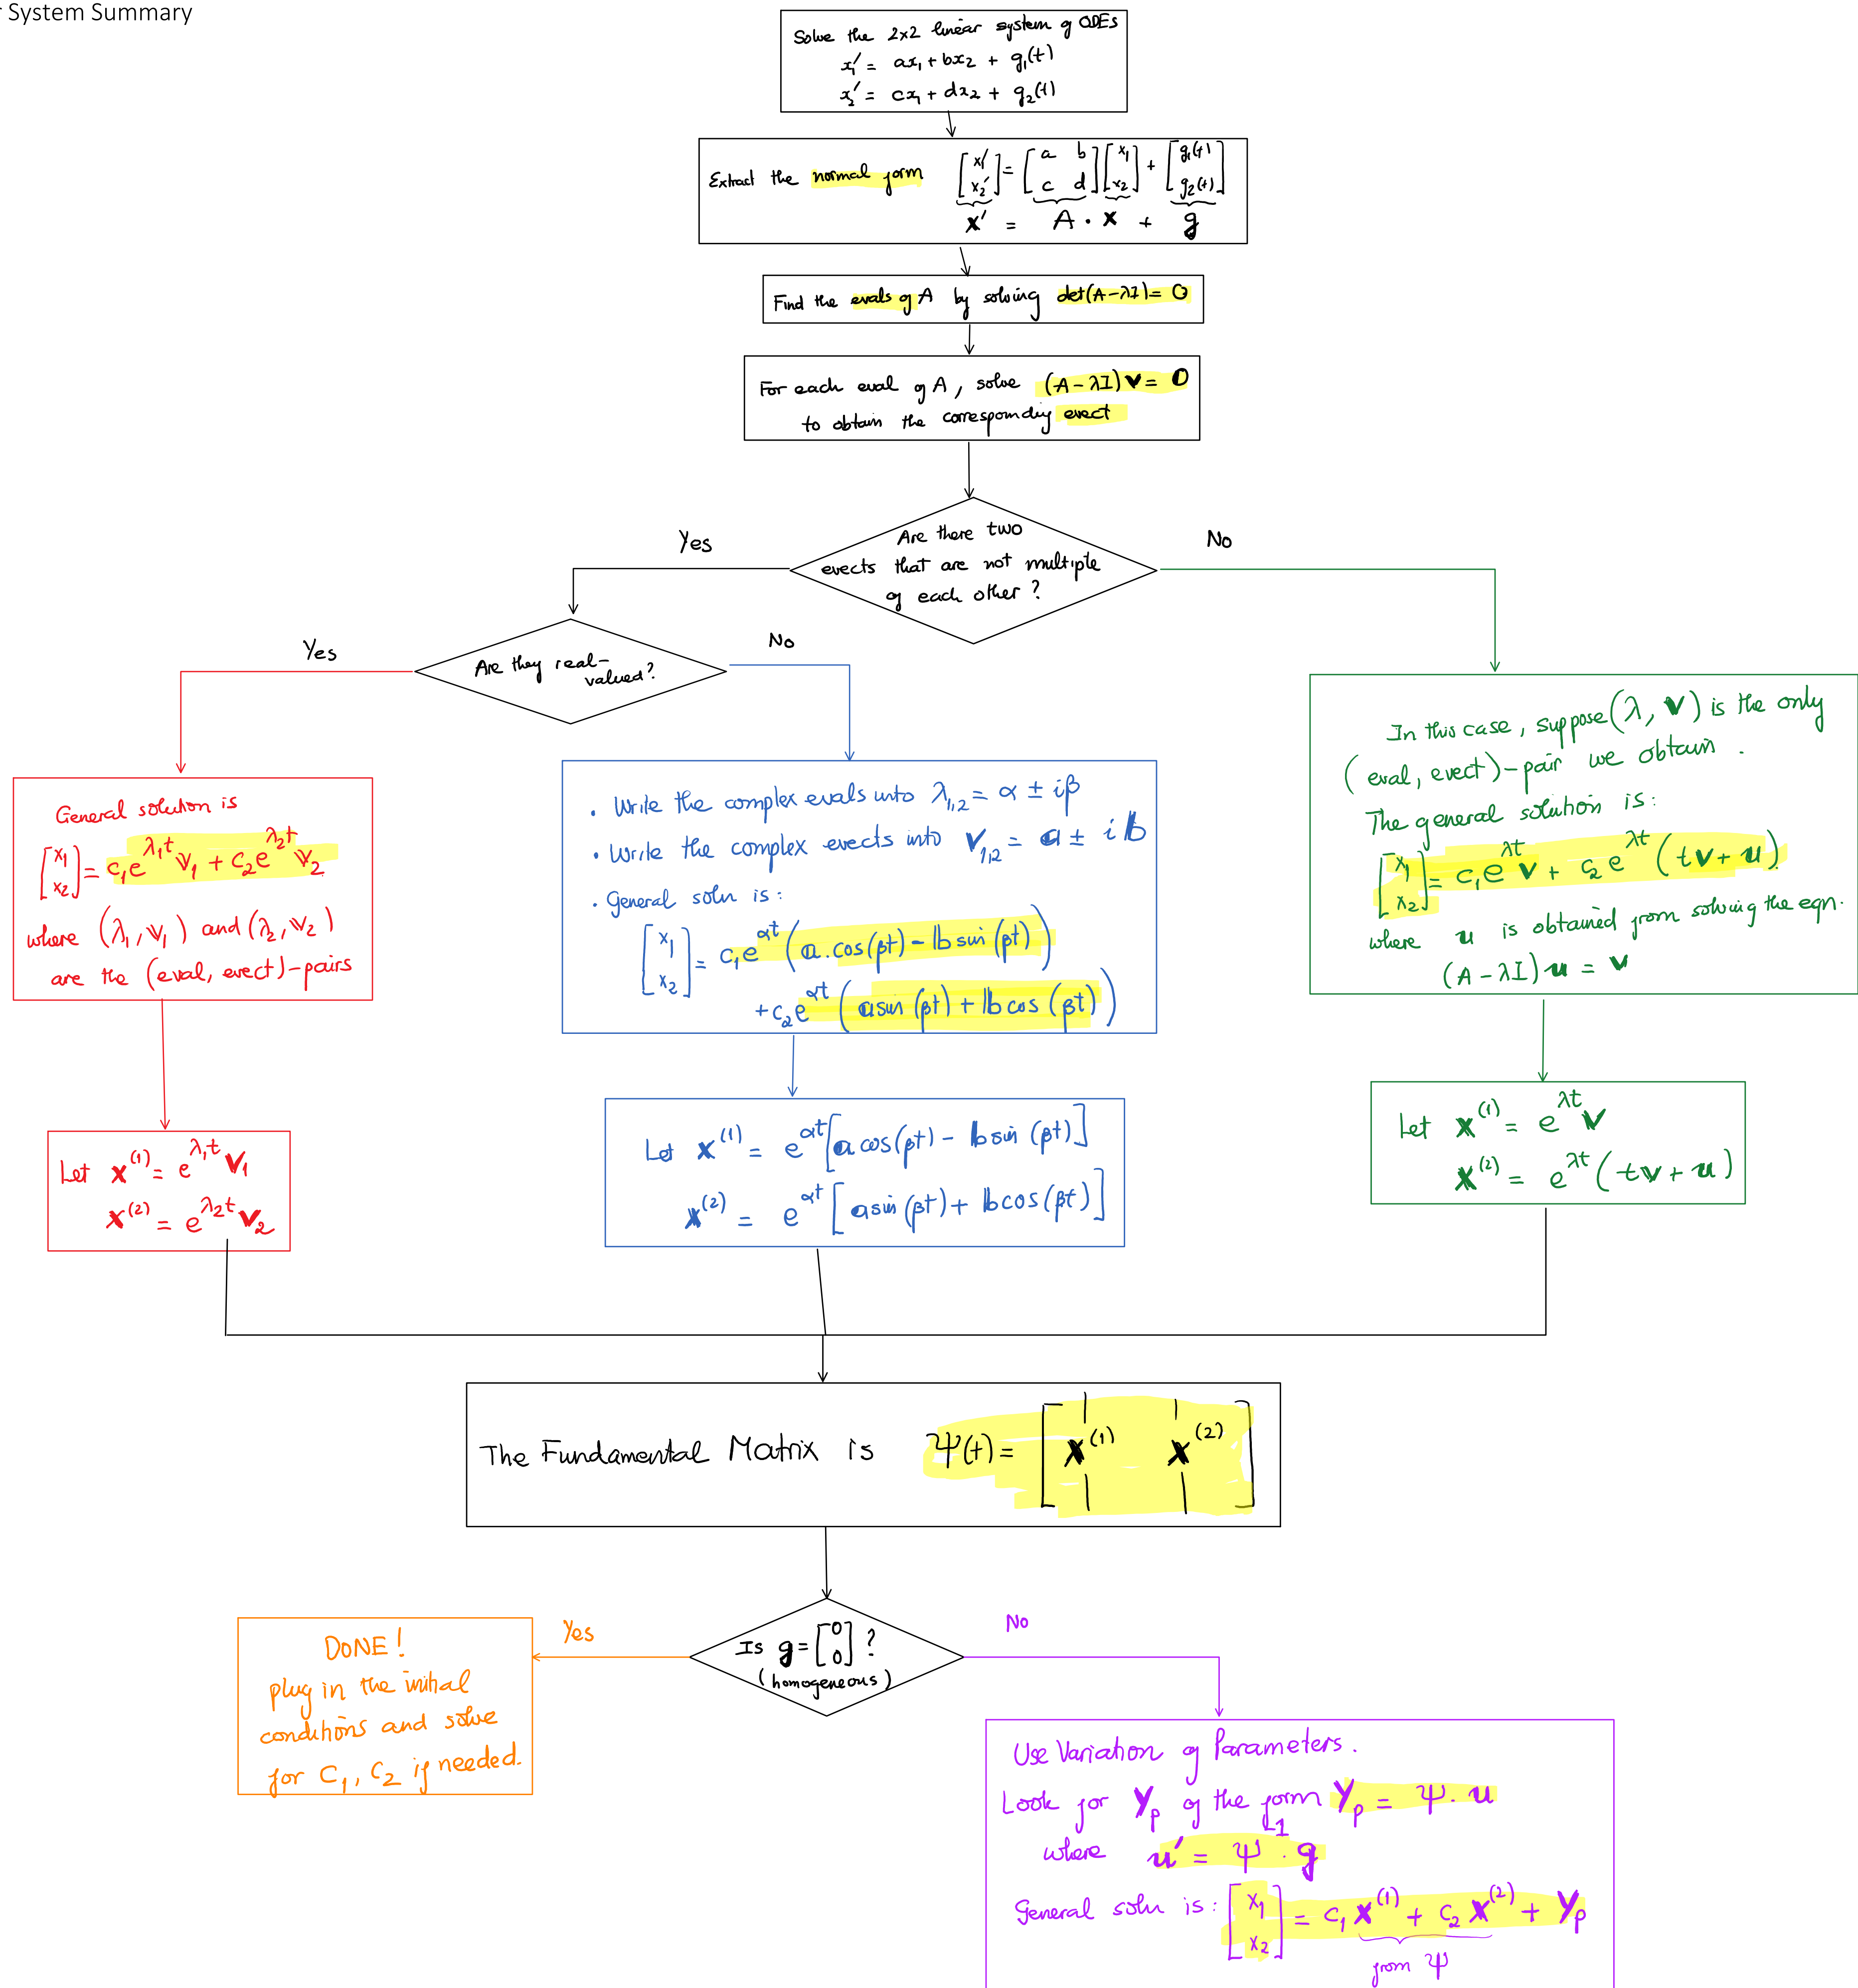 r System Summary
Solve the 2x2 linear system of ODEs
x₁' = ax₁ + bx₂ + g₁(t)
x₂' = cx₁ + dx₂ + g₂(t)
Extract the normal form [x₁' x₂'] = [a b c d] [x₁ x₂] + [g₁(t) g₂(t)]
x' = A · x + g
Find the evals of A by solving det(A-λI) = 0
For each eval of A, solve (A-λI)v = 0
to obtain the corresponding evect
Are there two
evects that are not multiple
of each other?
Yes
No
Are they real-
valued?
Yes
No
General solution is
[x₁ x₂] = c₁e^(λ₁t) v₁ + c₂e^(λ₂t) v₂
where (λ₁, v₁) and (λ₂, v₂)
are the (eval, evect)-pairs
Let x⁽¹⁾ = e^(λ₁t) v₁
x⁽²⁾ = e^(λ₂t) v₂
• Write the complex evals into λ₁,₂ = α ± iβ
• Write the complex evects into v₁,₂ = a ± ib
• General soln is:
[x₁ x₂] = c₁e^(αt) (a.cos(βt) - b sin(βt))
+ c₂e^(αt) (a sin(βt) + b cos(βt))
Let x⁽¹⁾ = e^(αt) [a cos(βt) - b sin(βt)]
x⁽²⁾ = e^(αt) [a sin(βt) + b cos(βt)]
In this case, suppose (λ, v) is the only
(eval, evect)-pair we obtain.
The general solution is:
[x₁ x₂] = c₁e^(λt) v + c₂e^(λt) (tv + u)
where u is obtained from solving the eqn.
(A-λI)u = v
Let x⁽¹⁾ = e^(λt) v
x⁽²⁾ = e^(λt) (tv + u)
The Fundamental Matrix is Ψ(t) = [x⁽¹⁾ x⁽²⁾]
Is g = [0 0] ?
(homogeneous)
Yes
No
DONE!
plug in the initial
conditions and solve
for C₁, C₂ if needed.
Use Variation of Parameters.
Look for Yp of the form Yp = Ψ·u
where u' = Ψ⁻¹·g
General soln is: [x₁ x₂] = c₁x⁽¹⁾ + c₂x⁽²⁾ + Yp
from Ψ